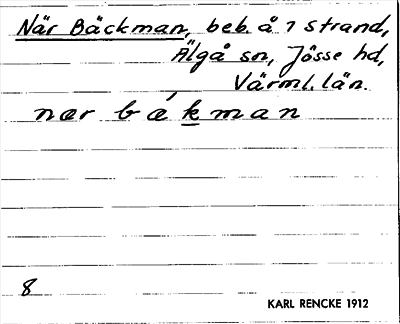 När Bäckman, beb. å 7 strand,
Älgå sn, Jösse hd,
Värml. län.
nær bǽkman
8
KARL RENCKE 1912